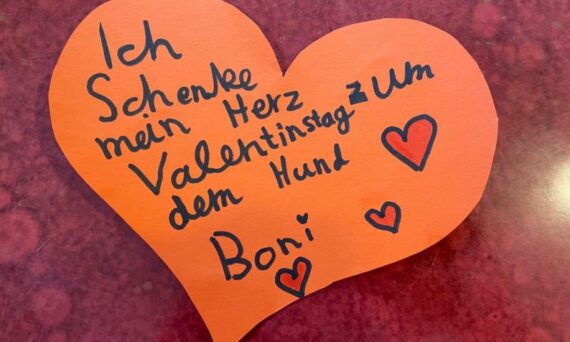 Ich
Schenke
mein Herz zum
Valentinstag
dem Hund
Boni